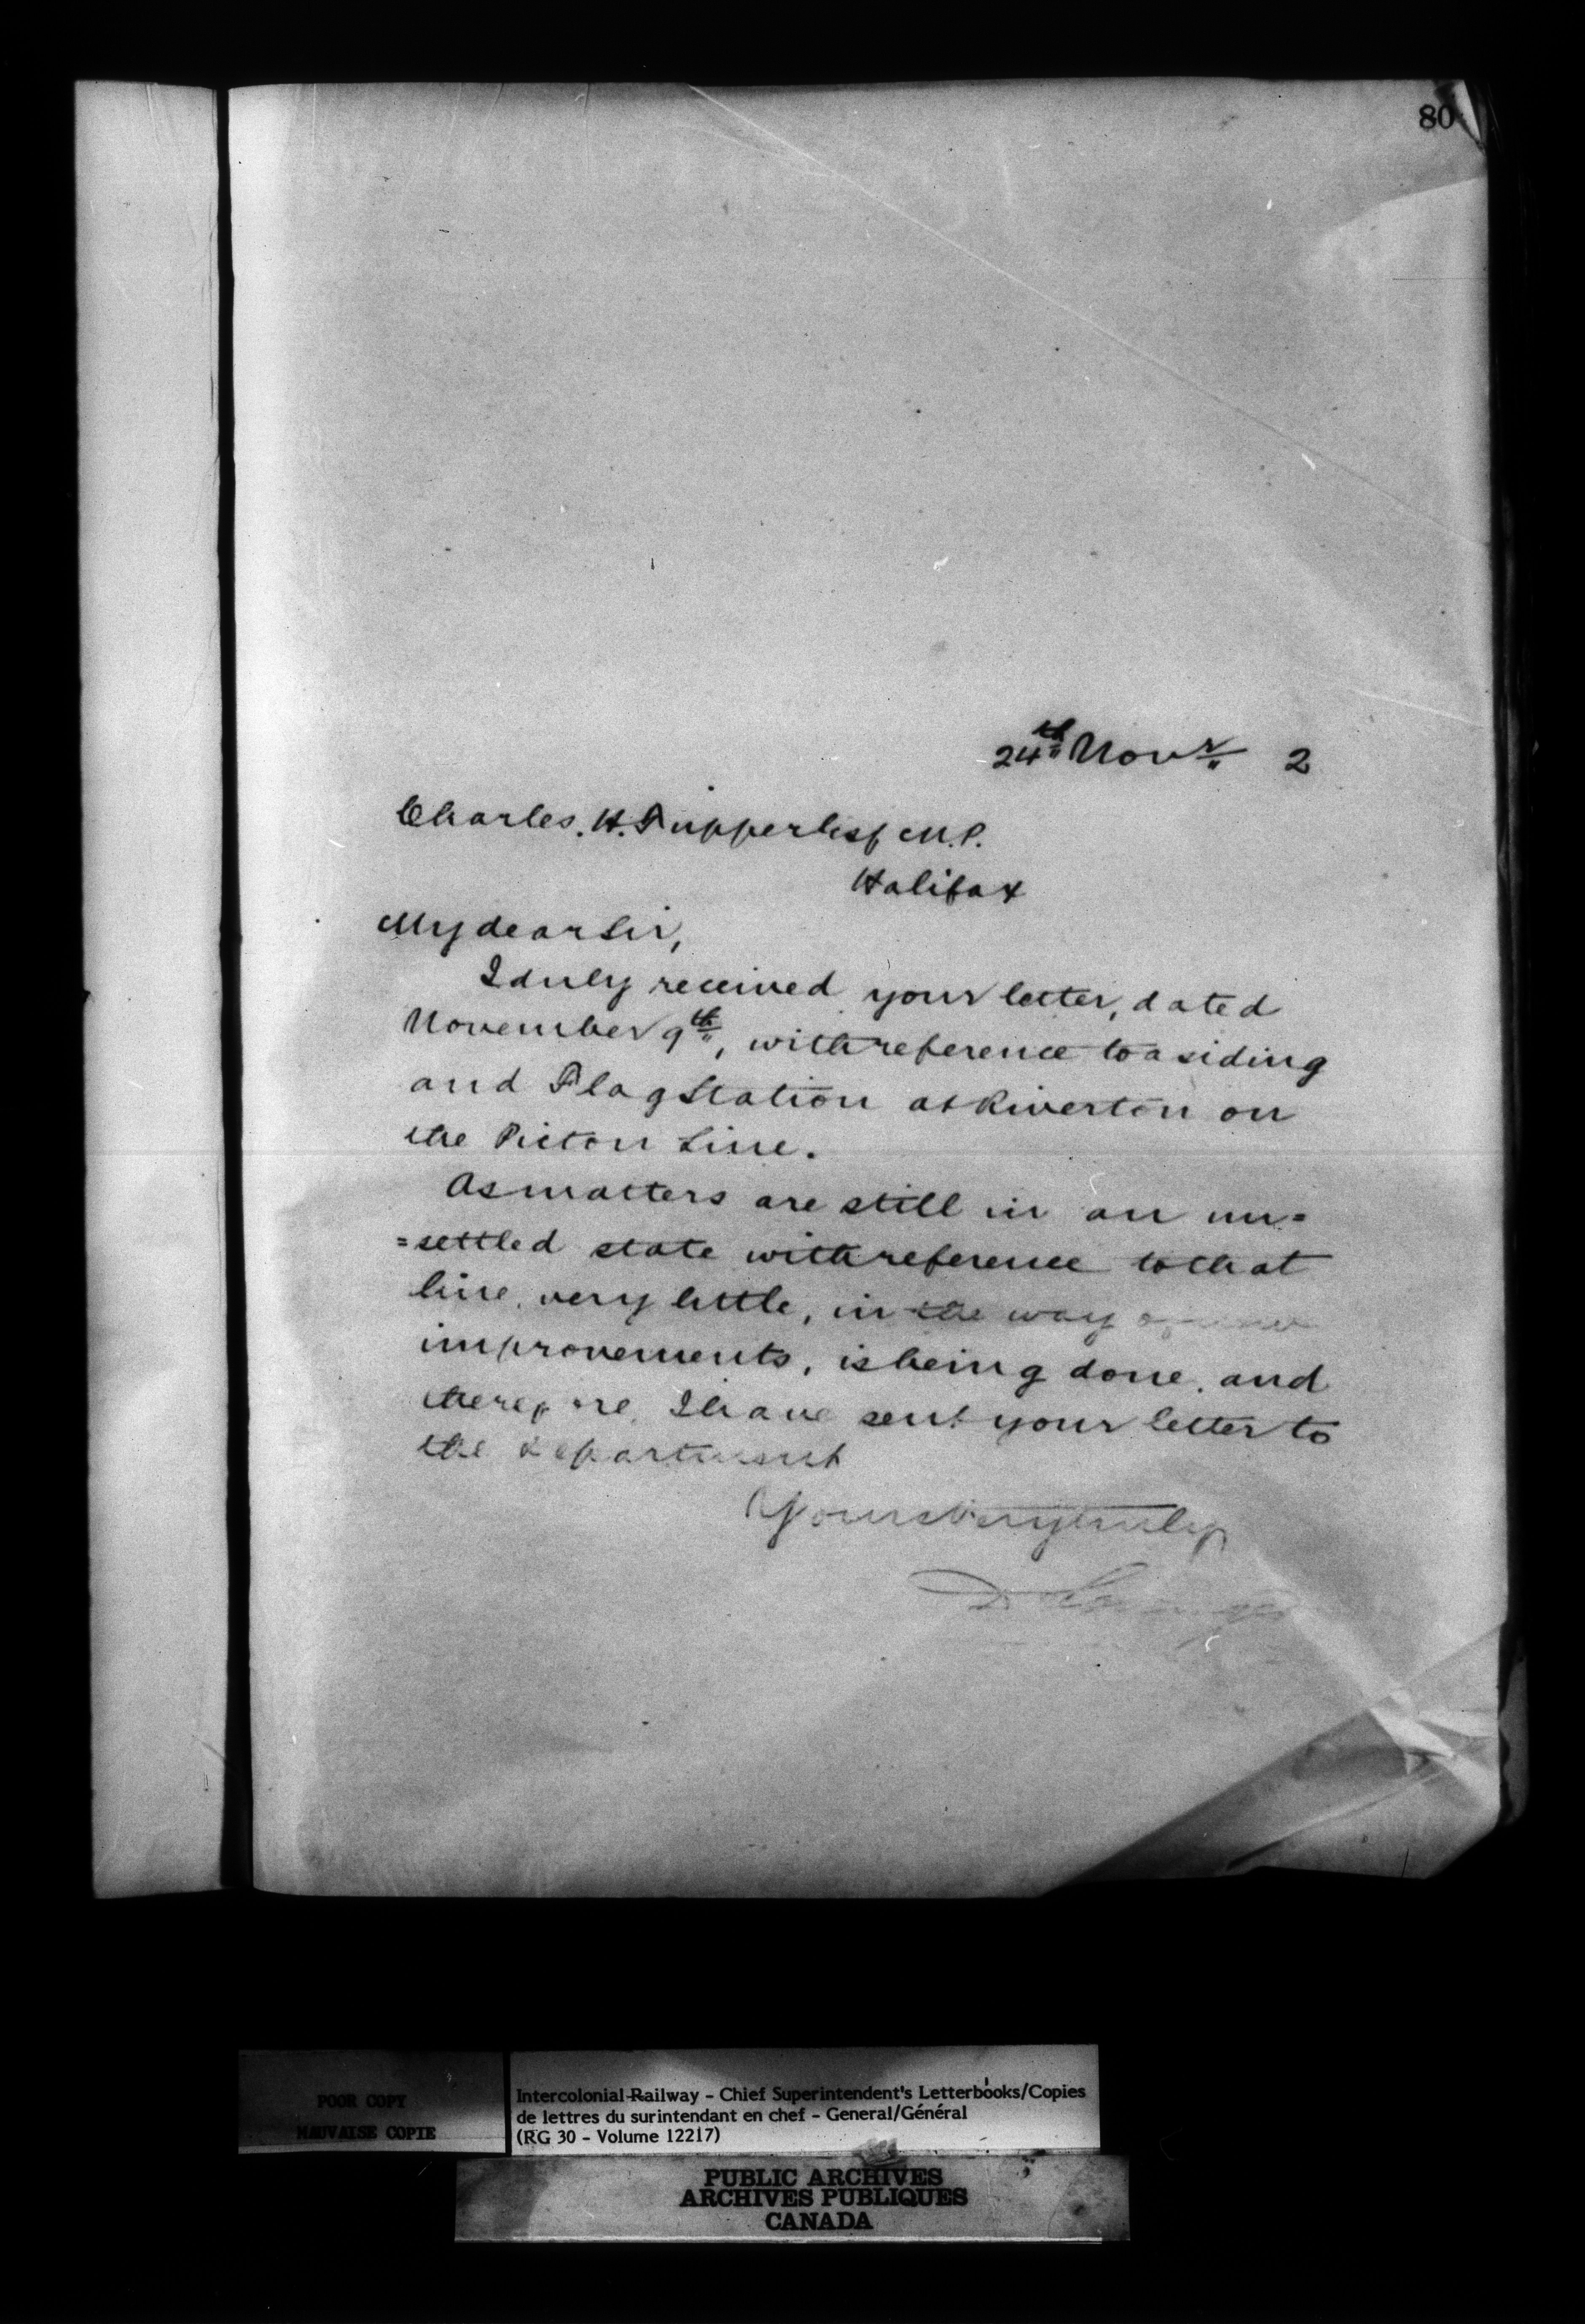 80
24th Novr 2
Charles. H. Tupper Esq M.P.
Halifax
My dear Sir,
I duly received your letter, dated
November 9th, with reference to a siding
and Flag Station at Riverton on
the Pictou Line.
As matters are still in an un=
=settled state with reference to that
line, very little, in the way of new
improvements, is being done, and
therefore, I have sent your letter to
the Department
Yours very truly
D
POOR COPY
MAUVAISE COPIE
Intercolonial Railway - Chief Superintendent's Letterbooks/Copies
de lettres du surintendant en chef - General/Général
(RG 30 - Volume 12217)
PUBLIC ARCHIVES
ARCHIVES PUBLIQUES
CANADA